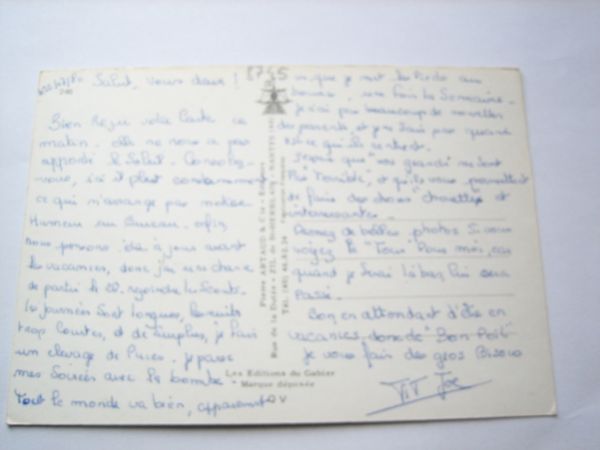 Salut, vous deux !
5745
Bien reçu votre Carte ce
matin. elle ne nous a pas
apporté le Soleil. Consolez-
vous, ici il pleut constamment
ce qui n'arrange pas notre
Humeur au Bureau. enfin
nous pensons être à jour avant
les vacances, donc j'ai une chance
de partir le rejoindre les Scouts.
les journées Sont longues, les nuits
trop Courtes, et de plus, je fais
un élevage de Puces. je passe
mes Soirées avec la bombe.
Tout le monde va bien, apparemment
Pierre ARTAUD & Cie - Editeurs
Rue de la Dutée - Z.I.L. de St-HERBLAIN - NANTES
Les Editions du Gabier
Marque déposée
G V
que je met les Pieds au
bureau, une fois la Semaine.
je n'ai pas beaucoup de nouvelles
des parents, et je ne Sais pas quand
est-ce qu'ils rentrent.
j'espère que "vos grands" ne Sont
Pas "Terribles", et qu'ils vous permettent
de faire des choses chouettes et
intéressantes.
Prenez de belles photos Si vous
voyez le "Tour" Pour moi, car
quand je Serai libre, lui sera
Passé.
Bon en attendant d'être en
vacances, donc de "Bon Poil"
je vous fais des gros Bisous
Tit Joe